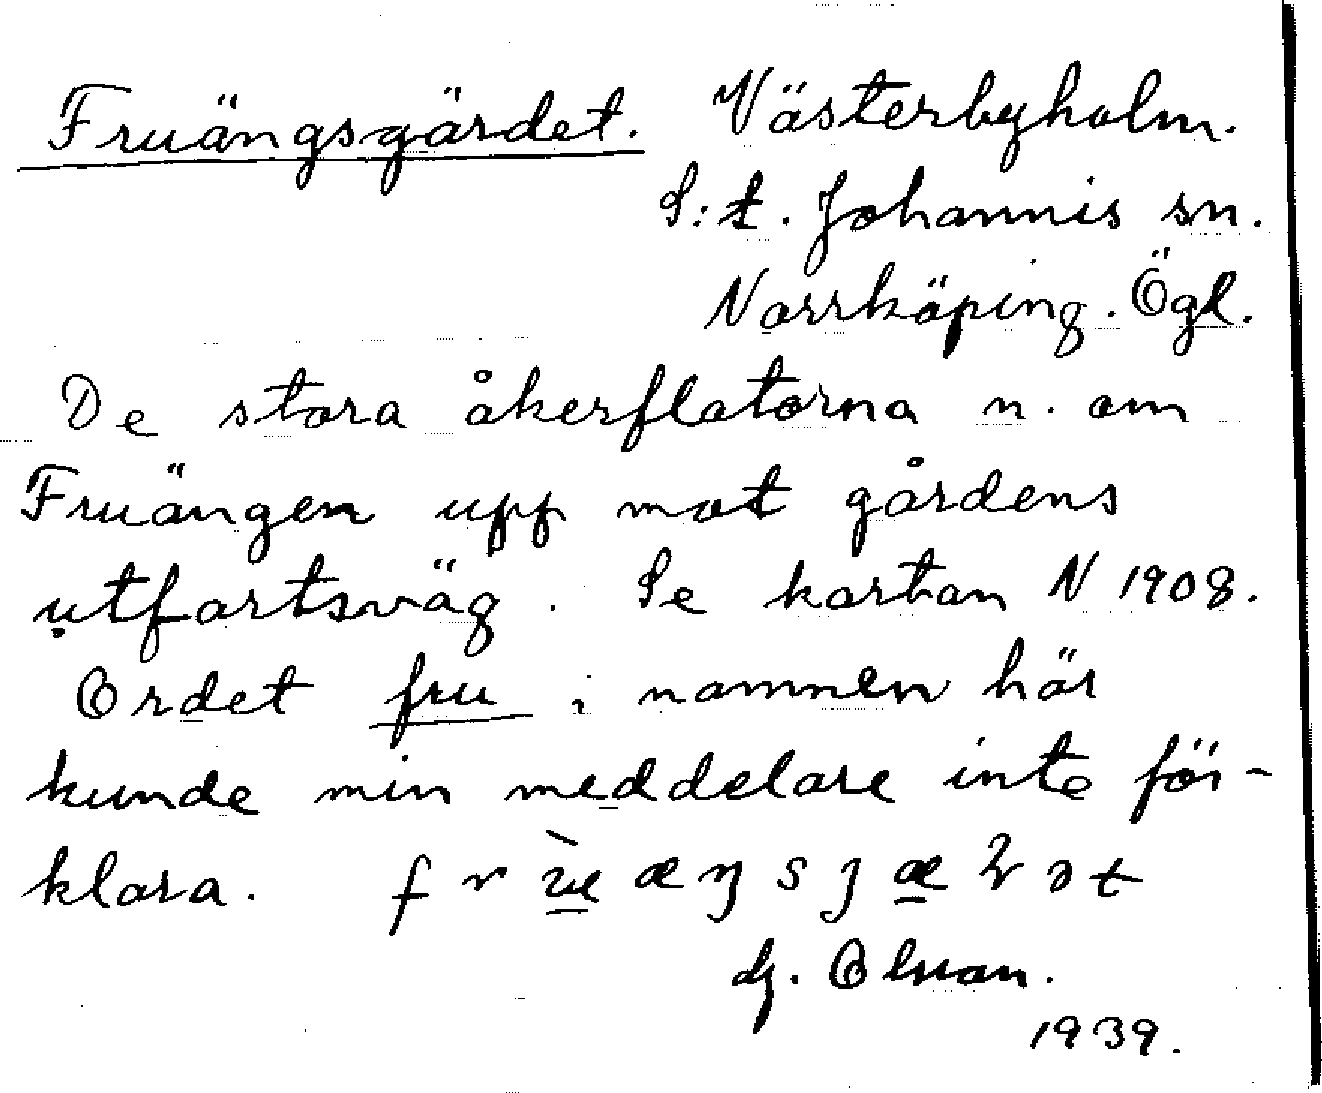 Fruängsgärdet. Västerbyholm.
S:t. Johannis sn.
Norrköping. Ögl.
De stora åkerflatorna n. om
Fruängen upp mot gårdens
utfartsväg. Se kartan N 1908.
Ordet fru i namnen här
kunde min meddelare inte för-
klara.
Olsson.
1939.